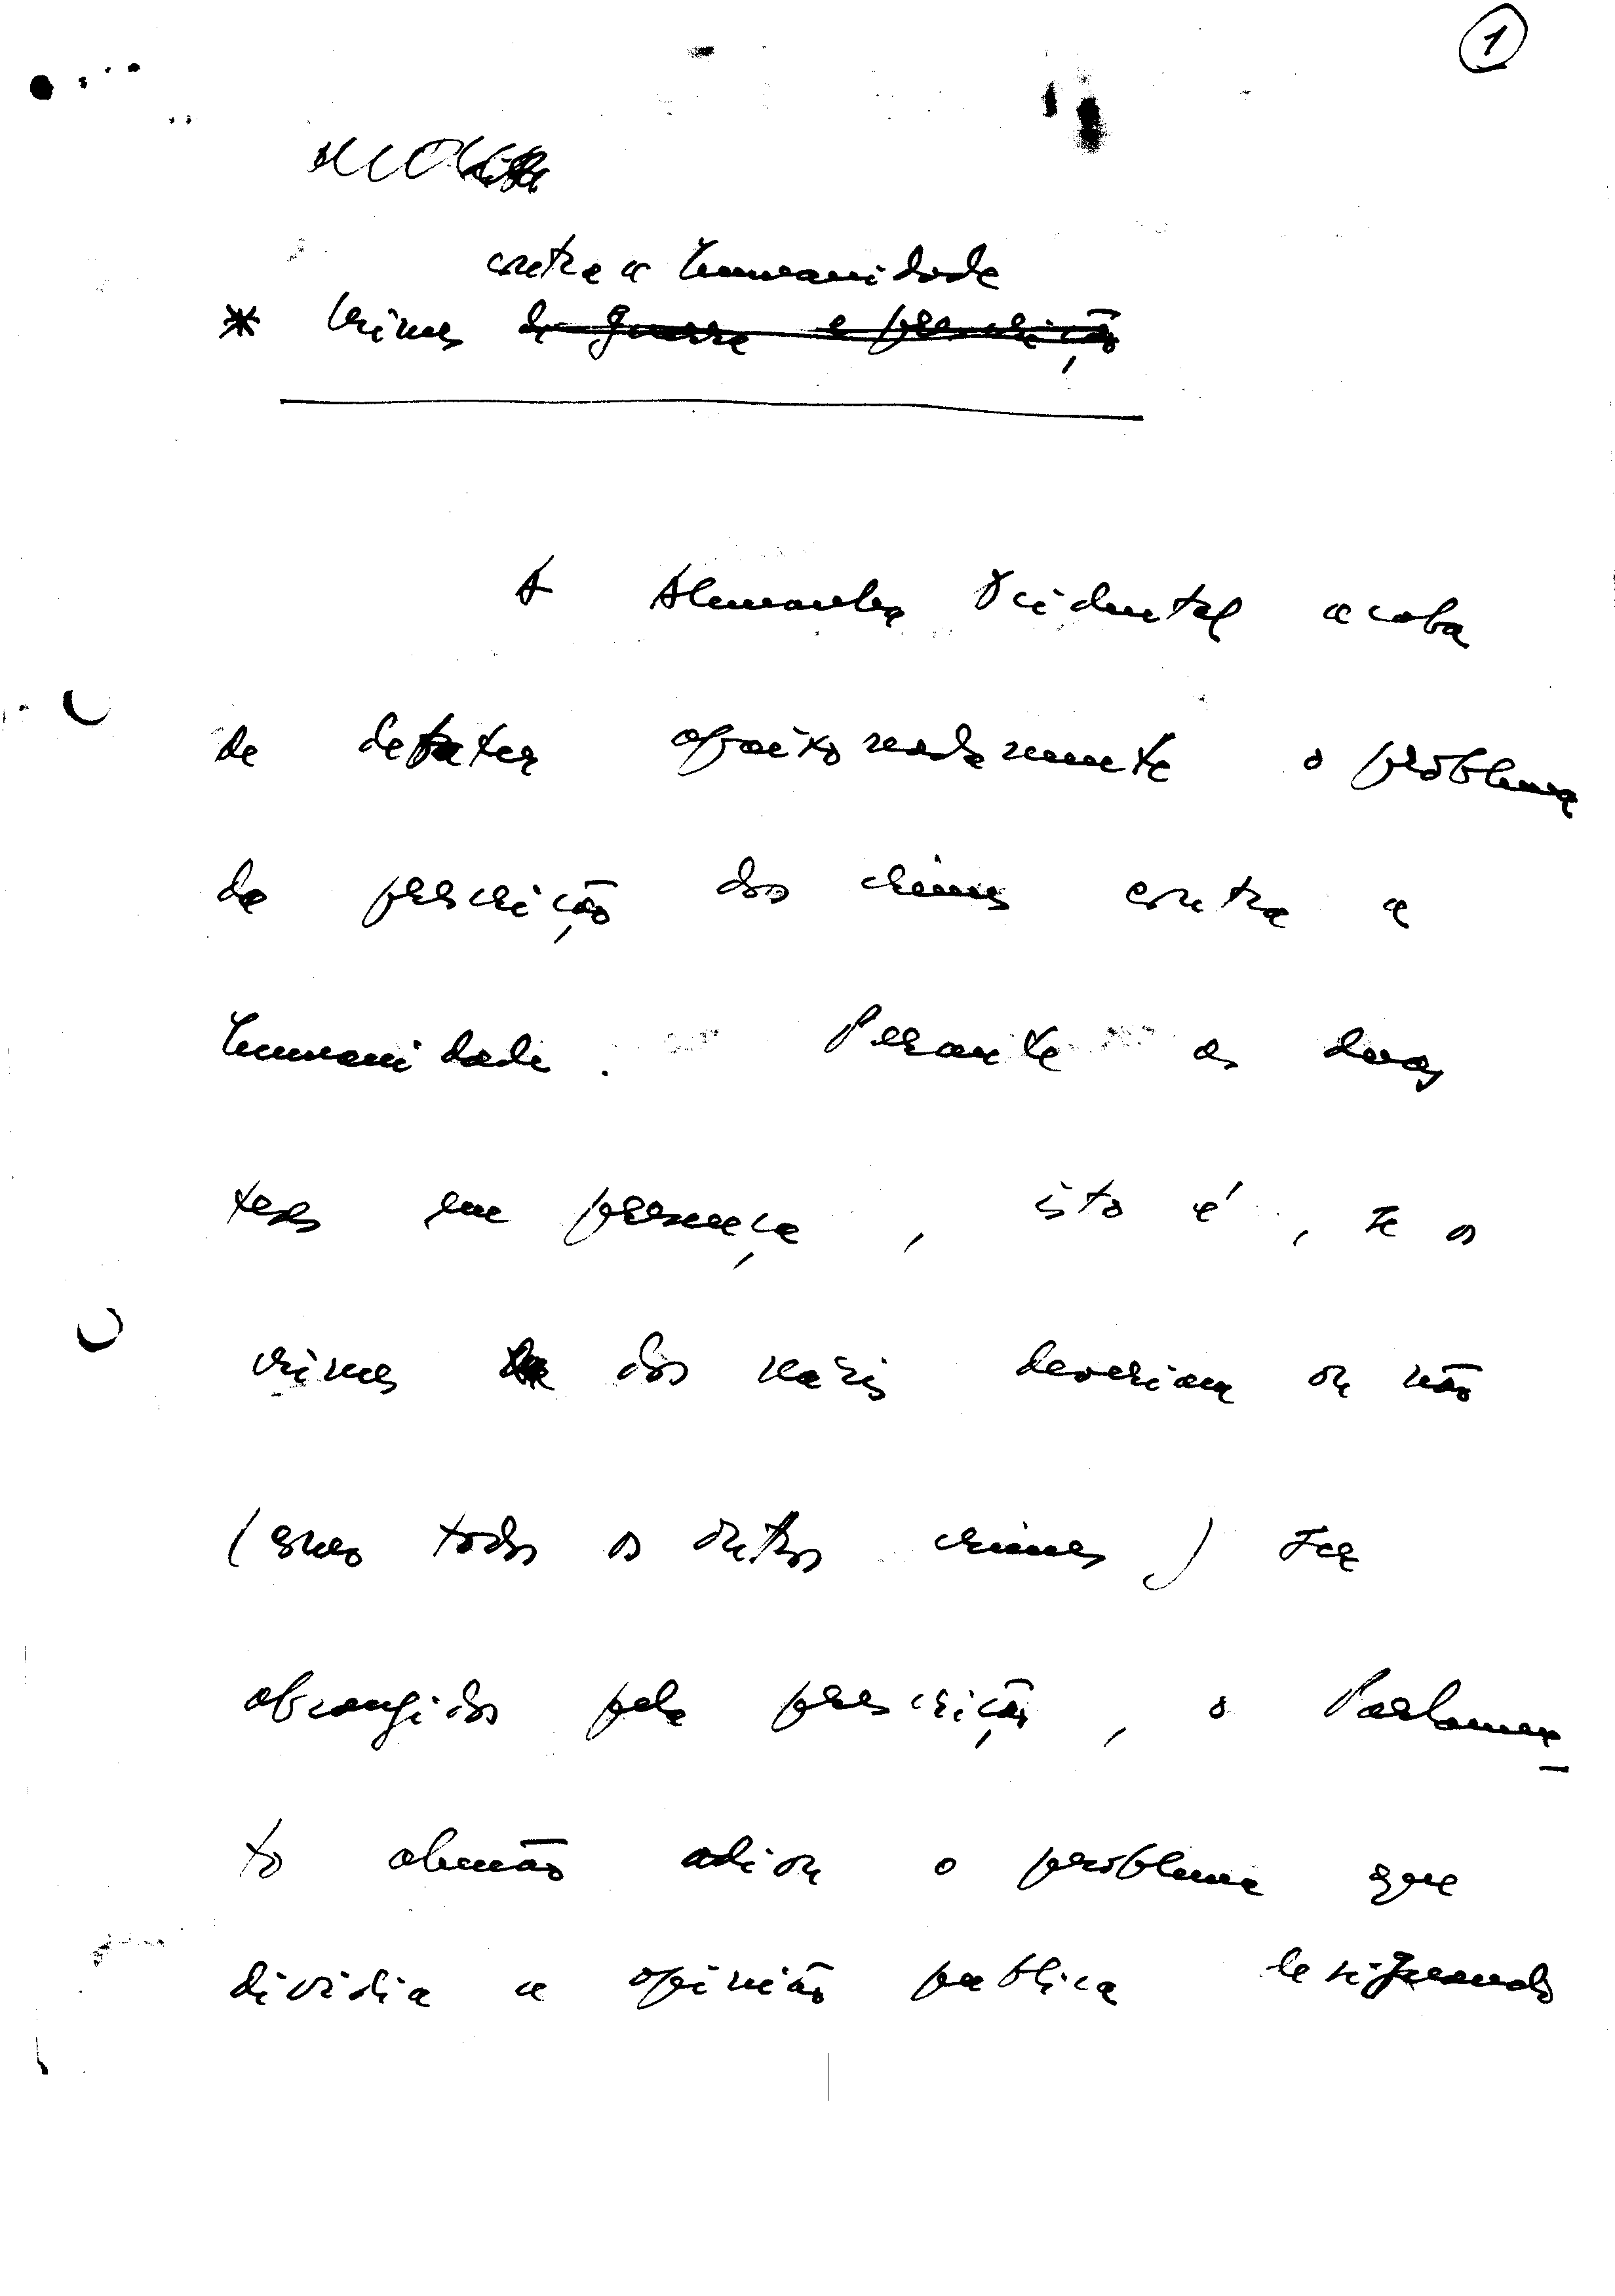 1
contra a humanidade
* Crimes de guerra e prescrição
A Alemanha Ocidental acaba
de debater apaixonadamente o problema
da prescrição dos crimes contra a
humanidade. Perante as duas
teses em presença, isto é, se os
crimes dos nazis deveriam ou não
(como todos os outros crimes) ser
abrangidos pela prescrição, o Parlamen-
to alemão adiou o problema que
dividia a opinião publica designando